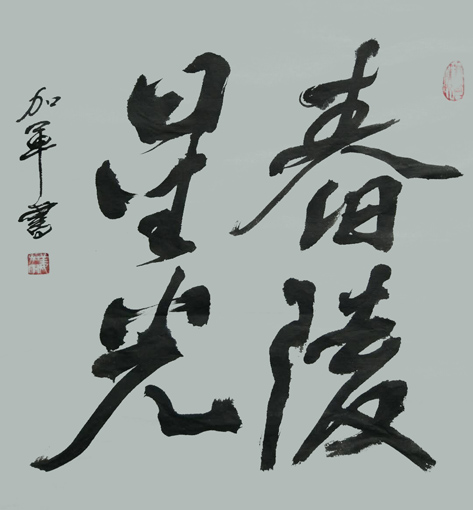 春陵
星光
加军書